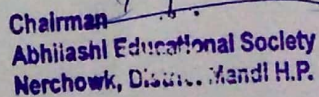 Chairman
Abhilashi Educational Society
Nerchowk, District Mandi H.P.